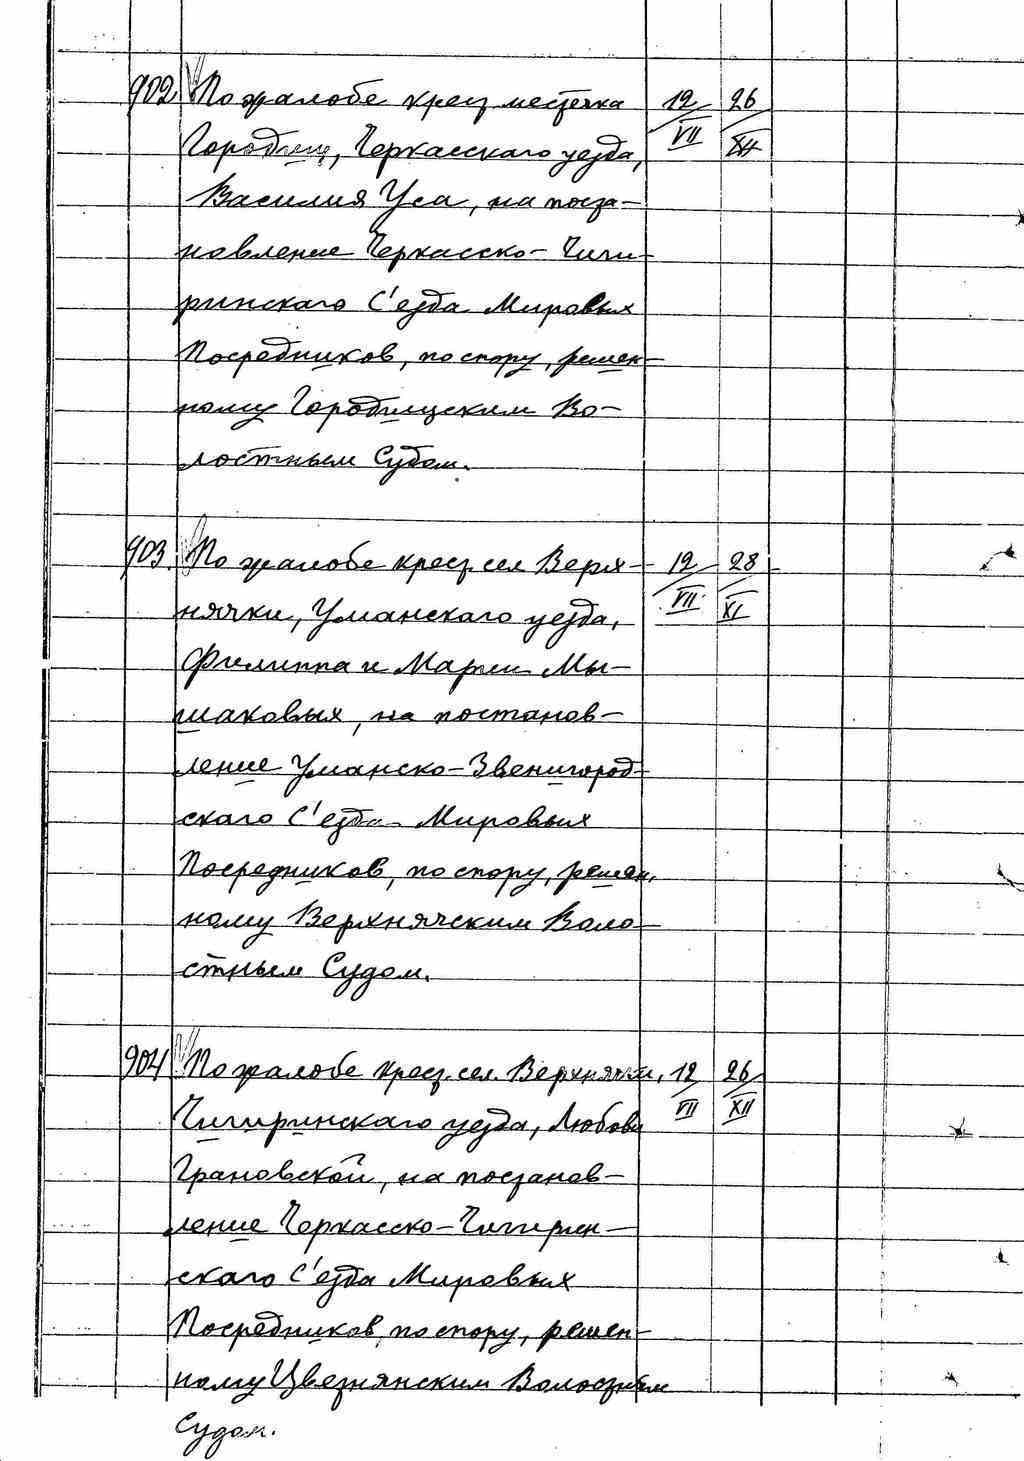 902 По жалобе крест местечка 12 26
Городищ, Черкасскаго уезда, VII XII
Василия Уса, на поста-
новление Черкасско-Чиги-
ринскаго С'езда Мировых
Посредников, по спору, решен-
ному Городищским Во-
лостным Судом.
903. По жалобе крест. сел Верх- 12 28
нячки, Уманскаго уезда, VII XI
Филиппа и Марии Мы-
шаковых, на постанов-
ление Уманско-Звенигород-
скаго С'езда Мировых
Посредников, по спору, решен,
ному Верхнячским Воло-
стным Судом.
904 По жалобе крест. сел. Верхнячки, 12 26
Чигиринскаго уезда, Любови VII XII
Грановской, на постанов-
ление Черкасско-Чигирин-
скаго С'езда Мировых
Посредников, по спору, решен-
ному Цветнянским Волостным
Судом.